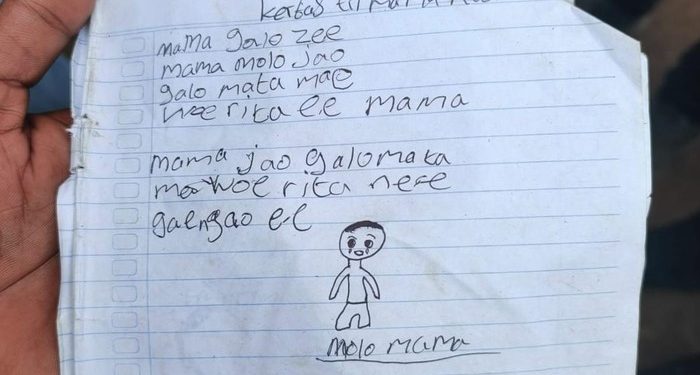 kertas tii mama
mama galo zee
mama molo jao
galo mata mae
woe rita ee mama
mama jao galo mata
mae woe rita nee
gae ngao e-e
molo mama